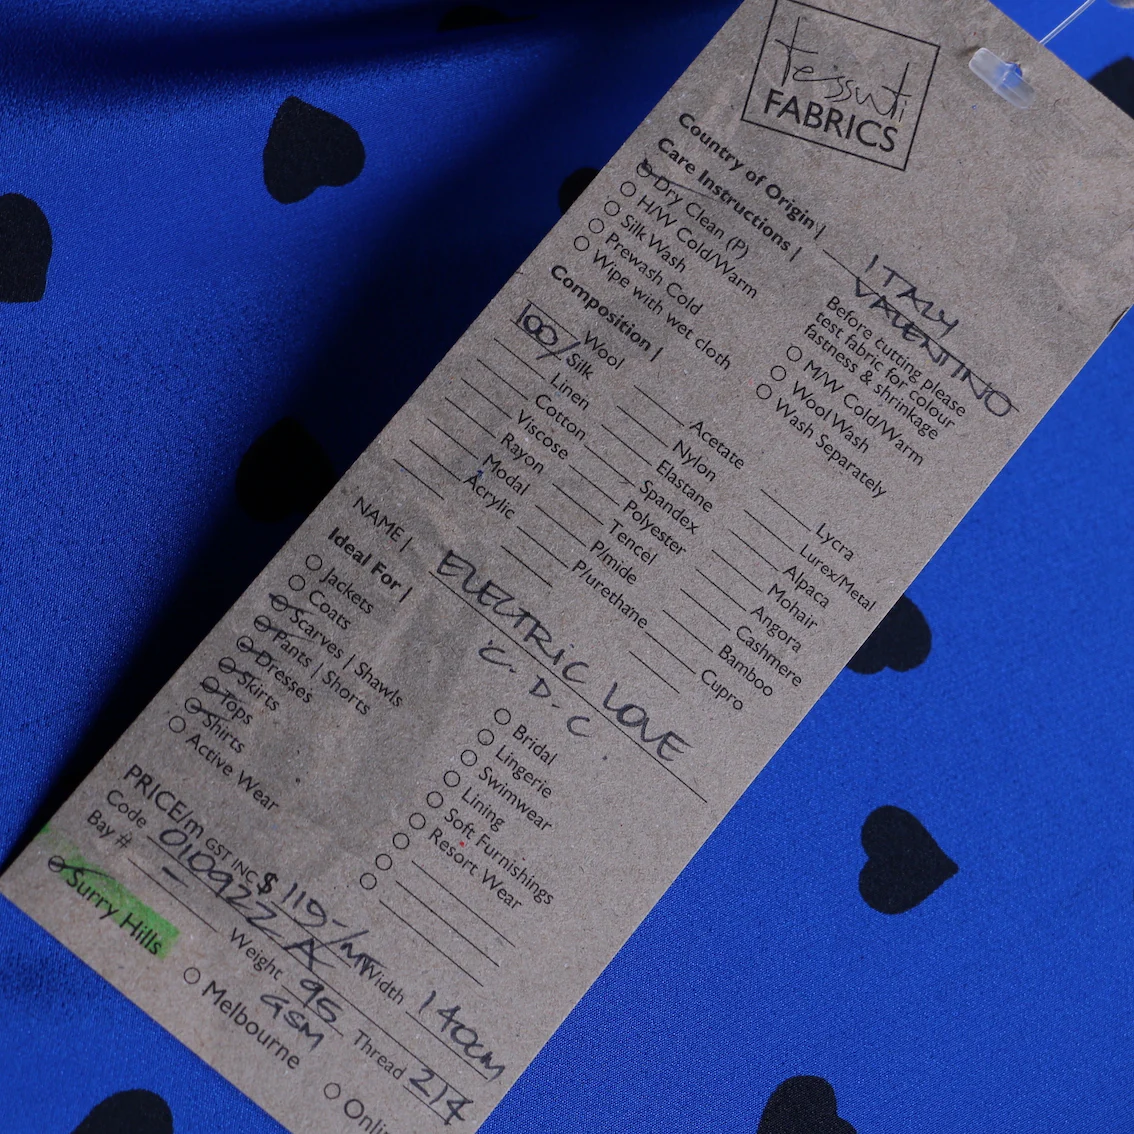 tessuti
FABRICS
Country of Origin | ITALY
VALENTINO
Care Instructions |
Dry Clean (P)
H/W Cold/Warm
Silk Wash
Prewash Cold
Wipe with wet cloth
Before cutting please
test fabric for colour
fastness & shrinkage
M/W Cold/Warm
Wool Wash
Wash Separately
Composition |
Wool
100/ Silk
Linen
Cotton
Viscose
Rayon
Modal
Acrylic
Acetate
Nylon
Elastane
Spandex
Polyester
Tencel
P/mide
P/urethane
Lycra
Lurex/Metal
Alpaca
Mohair
Angora
Cashmere
Bamboo
Cupro
NAME | ELECTRIC LOVE
C. D. C.
Ideal For |
Jackets
Coats
Scarves | Shawls
Pants | Shorts
Dresses
Skirts
Tops
Shirts
Active Wear
Bridal
Lingerie
Swimwear
Lining
Soft Furnishings
Resort Wear
PRICE/m GST INC $ 119-/m Width 140cm
Code 010922A Weight 95 GSM Thread 214
Bay #
Surry Hills
Melbourne